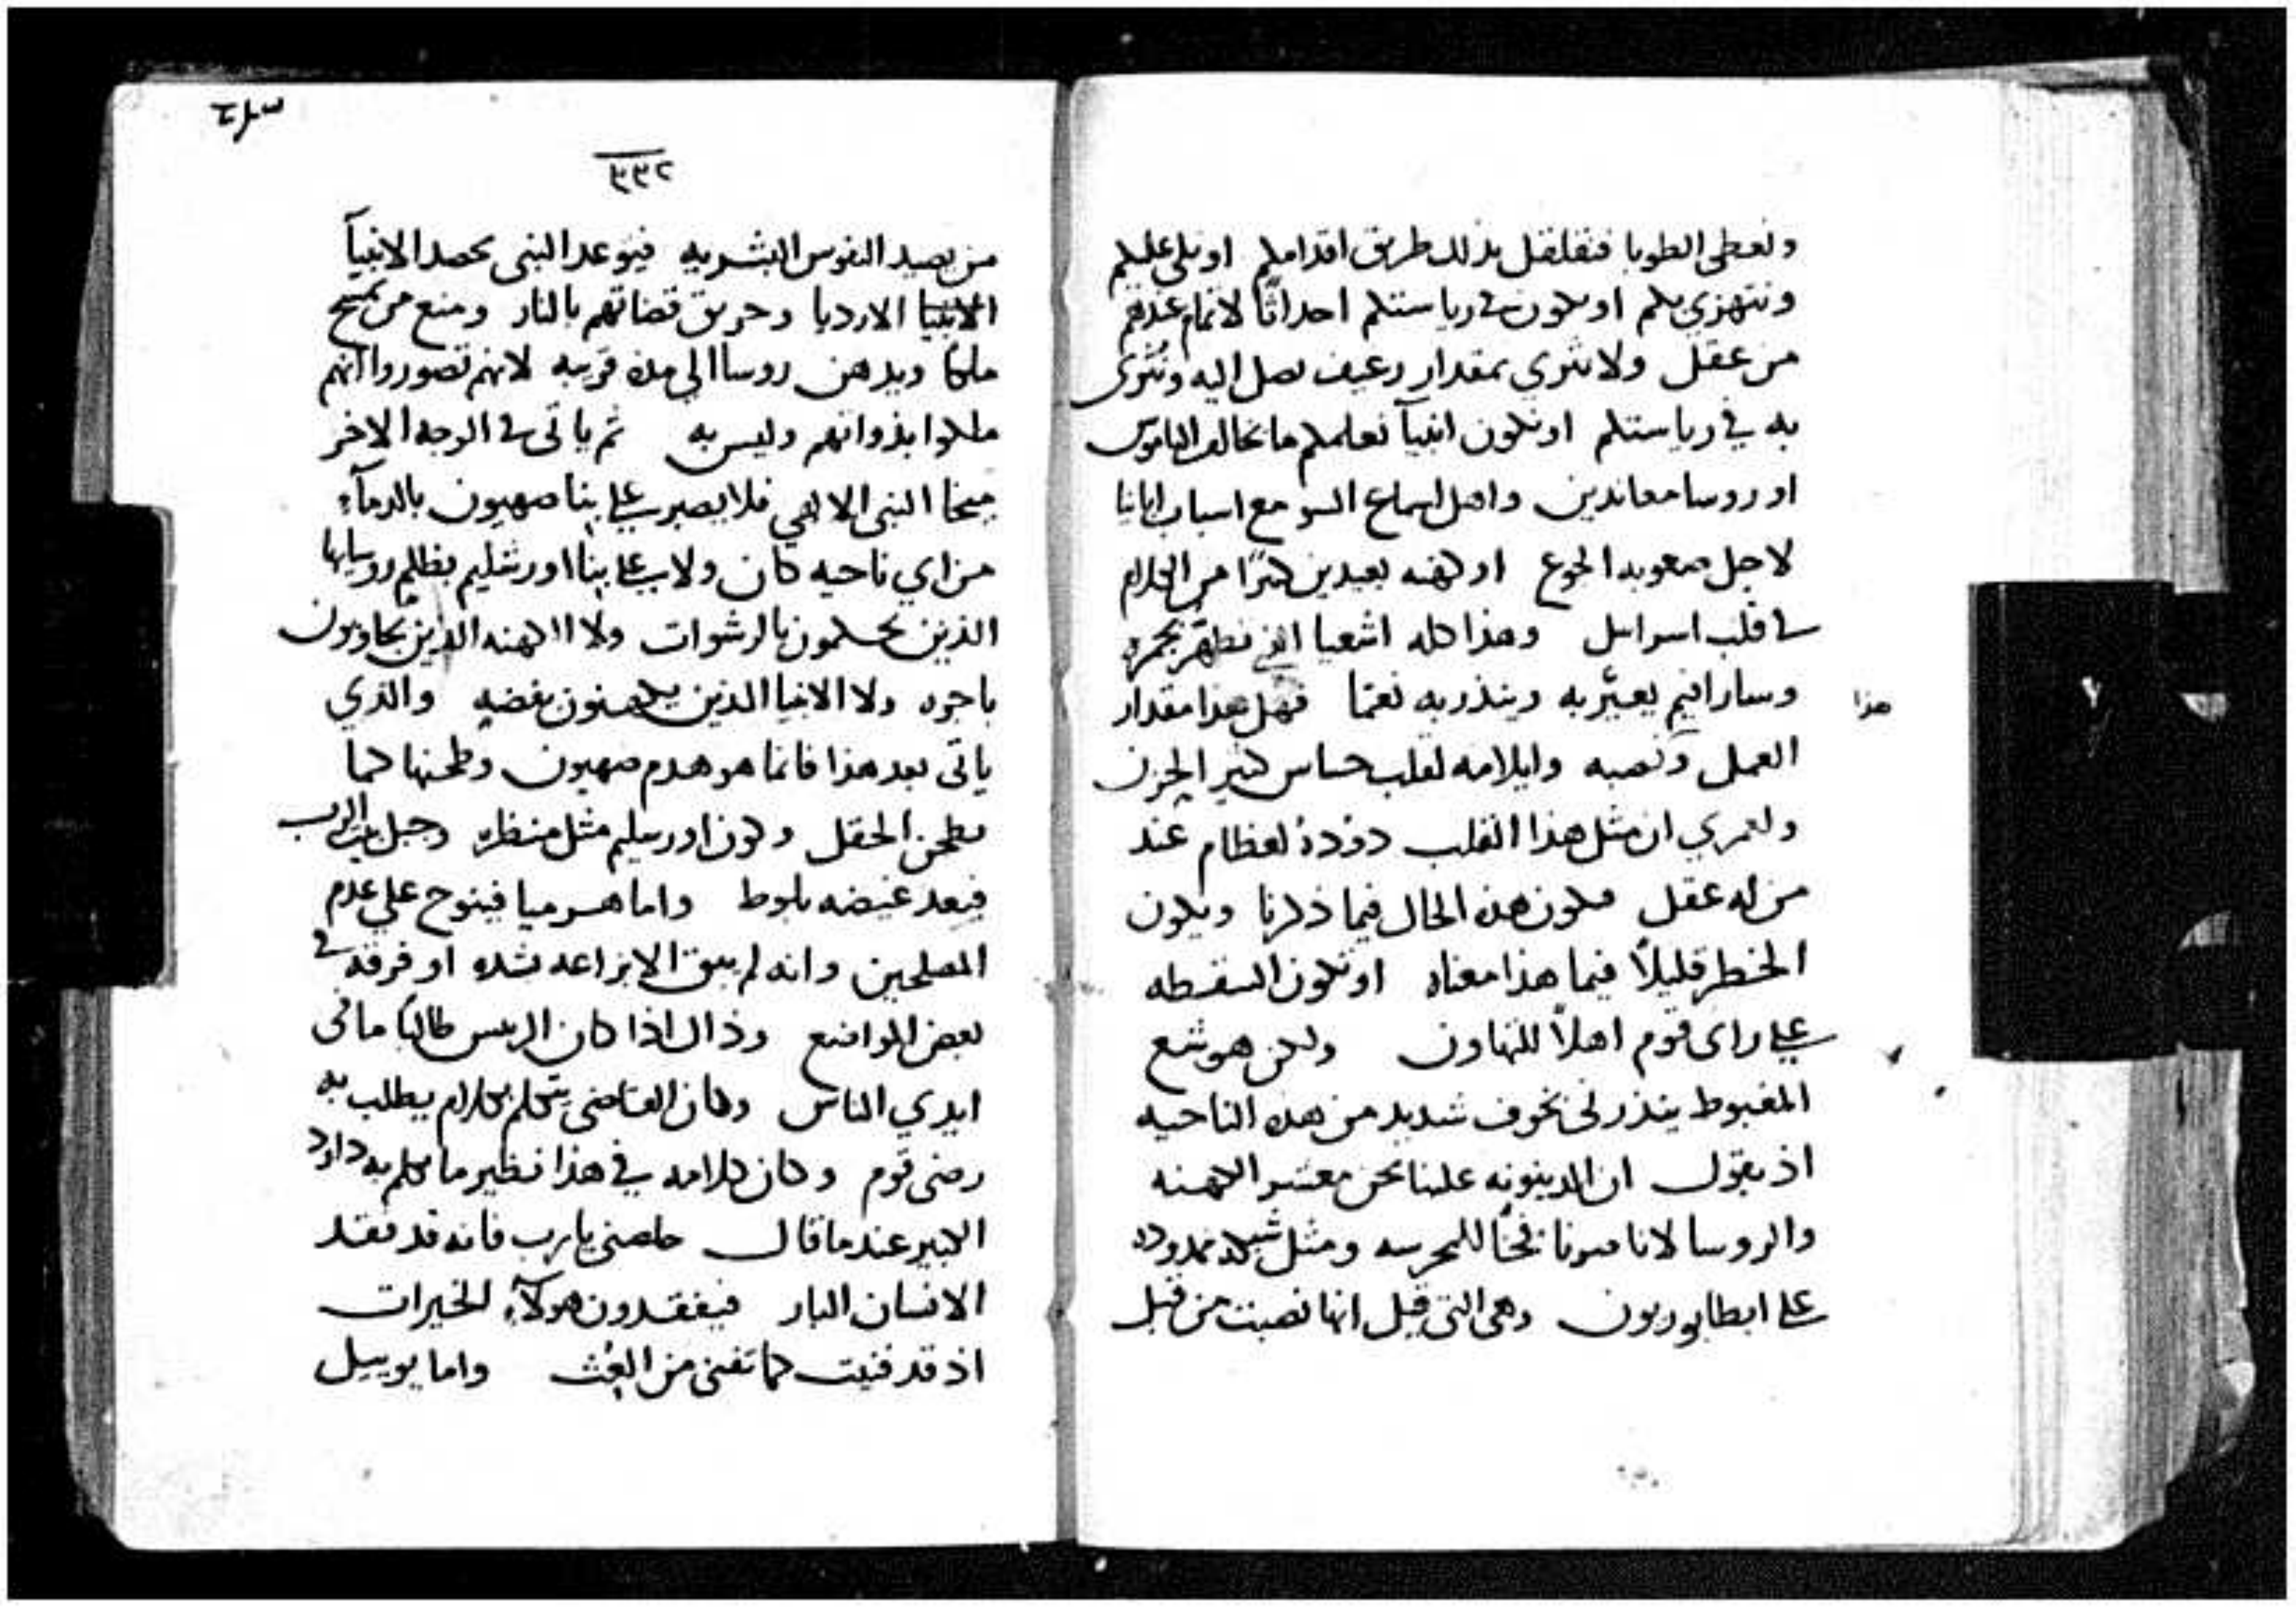 ونعطى الطوبا فنقلقل بذلك طريق اقدامكم او نلى عليكم
ونتهزي بكم او يكون في رياستكم احداثًا لاتمام عندهم
من عقل ولا نثري بمقدار رغيف نصل اليه ونثرى
به في رياستكم او نكون انبيآ نعلمكم ما يخالف الناموس
او روسا معاندين واهل اسماع السو مع اسباب ابانا
لاجل صعوبه الجوع او كهنه بعيدين كثرًا من الكلام
في قلب اسراىل وهذا كله اشعيا الذي تطهر بجمره
وسارافيم يعيّر به وينذر به نعمًا فهل هذا مقدار
هذا
العمل ونصبه وايلامه لقلب حساس كثير الحزن
ولعمري ان مثل هذا القلب دودة لعظام عند
من له عقل فيكون هذه الحال فيما ذكرنا ويكون
الخطر قليلاً فيما هذا معناه او تكون السقطه
على راى قوم اهلاً للتهاون ولكن هوشع
المغبوط ينذرنى بخوف شديد من هذه الناحيه
اذ يقول ان الدينونه علينا نحن معشر الكهنه
والروسا لانا صرنا فخًا للمحرسه ومثل شبكه ممدوده
على ايطابوريون وهى التى قيل انها نصبت من قبل
٢٩٩٢
من يصيد النفوس البشريه فيوعد النبى بحصد الانبيآ
الانبيا الارديا وحريق قضاتهم بالنار ومنع من يمسح
ملكًا ويدهن روسا الى مده قريبه لانهم تصوروا انهم
ملكوا بذواتهم وليس به ثم ياتى في الوجه الاخر
ميخا النبى الالهي فلا يصبر على بنا صهيون بالدمآء
من اي ناحيه كان ولا على بنا اورشليم بظلم روسايها
الذين يحكمون بالرشوات ولا الكهنه الذين يجاوبون
باجره ولا الانبيا الذين يتكهنون بفضه والذي
ياتى بعد هذا فانما هو هدم صهيون وطحنها كما
يطحن الحقل وكون اورشليم مثل منظره وجبل بيت الرب
فيعد غيضه بلوط واما هرميا فينوح على عدم
المصلحين وانه لم يبق الا بزاعه نشده او فرقه في
بعض المواضع وذاك اذا كان الريس طالبًا ما فى
ايدي الناس وكان القاضى يتكلم بكلام يطلب به
رضى قوم وكان كلامه في هذا نظير ما تكلم به داود
الكبير عندما قال خلصنى يا رب فانه قد نفد
الانسان البار فيفقدون هولآء الخيرات
اذ قد فنيت كما تفنى من العُث واما يوييل